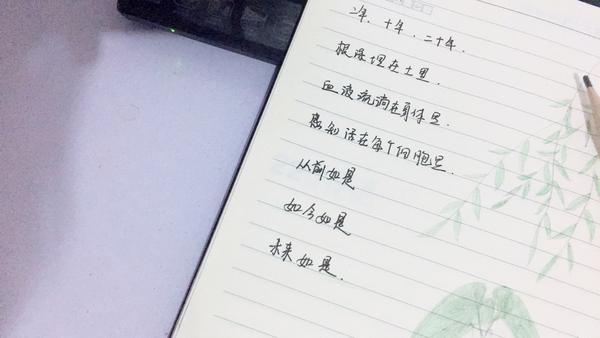 二年、十年、二十年.
根深埋在土里.
血液流淌在身体里.
感知活在每个细胞里.
从前如是
如今如是
未来如是.